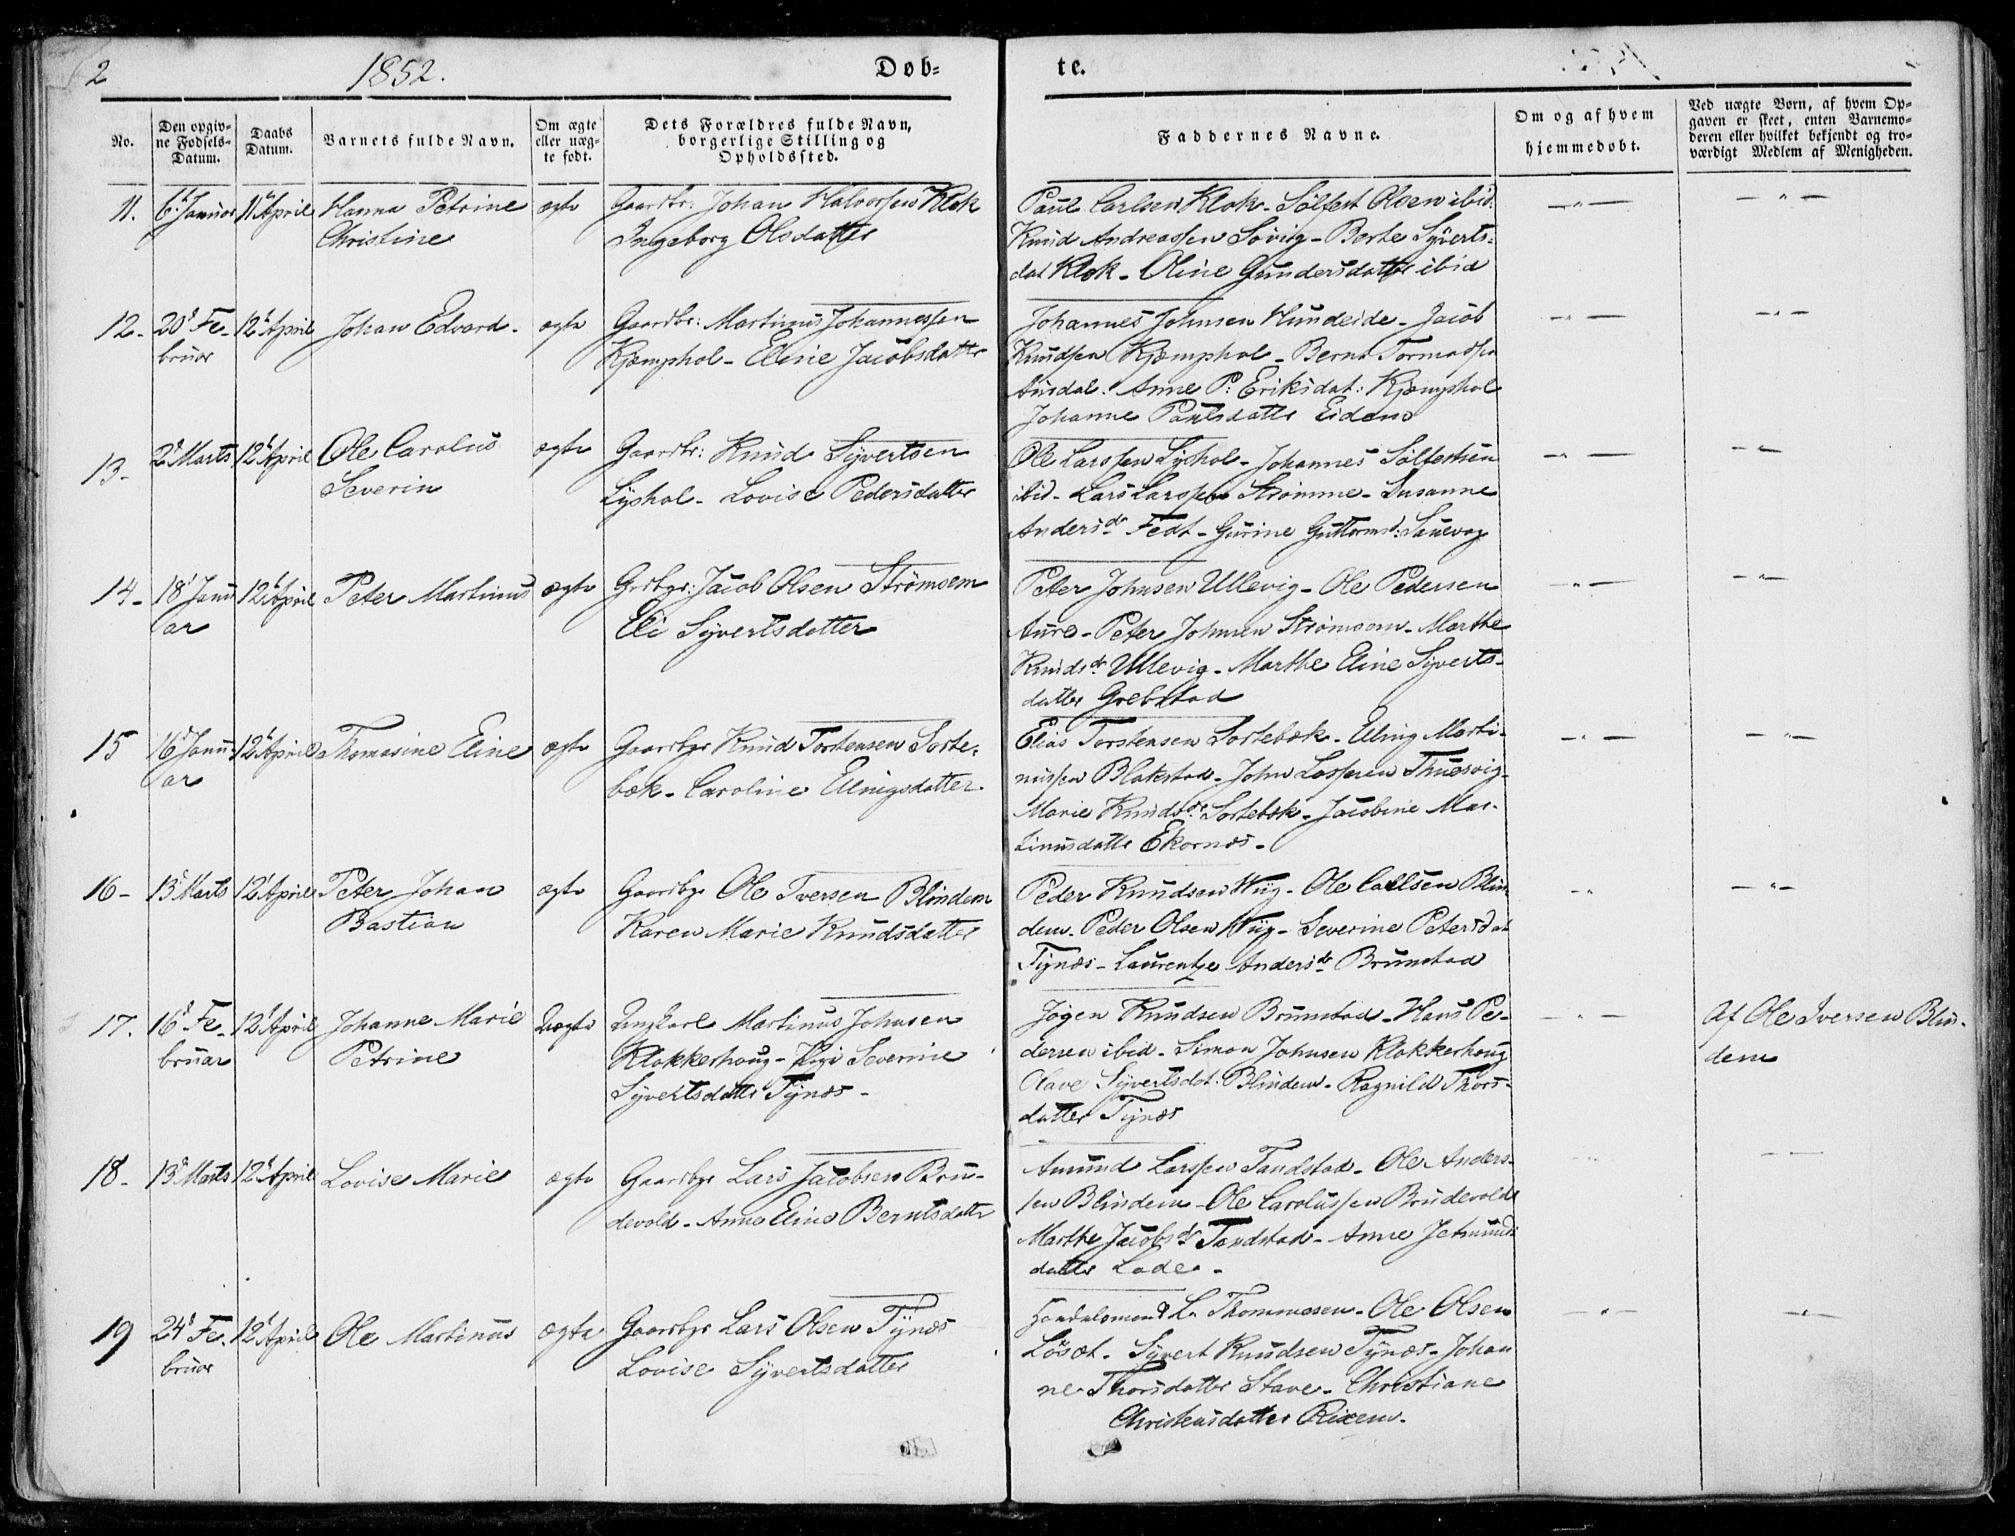 2
1852.
Døb=
te.
No.
Den opgiv=
ne Fødsels=
Datum.
Daabs
Datum.
Barnets fulde Navn.
Om ægte
eller uæg=
te født.
Dets Forældres fulde Navn,
borgerlige Stilling og
Opholdssted.
Faddernes Navne.
Om og af hvem
hjemmedøbt.
Ved uægte Børn, af hvem Op=
gaven er skeet, enten Barnemo=
deren eller hvilket bekjendt og tro=
værdigt Medlem af Menigheden.
11. 6t Januar 11t April Hanna Petrine ægte Gaardbr: Johan Halvorsen Klok
Christine Ingeborg Olsdatter
Paul Carlsen Klok - Sølfest Olsen ibid.
Knud Andreassen Sovig - Berte Syverts=
dat Klok - Oline Gundersdatter ibid
12- 20d Fe- 12t April Johan Edvard. ægte Gaardbr: Martinus Johannessen
bruar Kjæmphol - Eline Jacobsdatter
Johannes Johnsen Hundeide - Jacob
Knudsen Kjæmphol - Bernt Tormodsen
Ansdal. Anne P: Eriksdat: Kjæmphol
Johanne Paulsdatter Eidem
13- 2d Marts 12t April Ole Carolus ægte Gaardbr: Knud Syvertsen
Severin Lyshol - Lovise Pedersdatter
Ole Larssen Lyshol - Johannes Sølfestsen
ibid - Lars Larssen Strømme - Susanne
Andersdr Fedt - Gurine Guttormsd: Sauevog
14- 18t Janu 12t April Peter Martinus ægte Grdbgr: Jacob Olsen Strømsem
ar Eli Syvertsdatter
Peter Johnsen Ullevig - Ole Pedersen
Aure - Peter Johnsen Strømsem - Marthe
Knudsdr Ullevig - Marthe Eline Syverts-
datter Grebstad
15 16d Janu- 12t April Thomasine Eline ægte Gaardbgr Knud Torstensen Sorte-
ar bæk - Caroline Ellingsdatter
Elias Torstensen Sortebæk - Elling Marti-
nussen Blakstad - John Lassesen Thuesvig -
Marie Knudsdr Sortebæk - Jacobine Mar-
tinusdatter Ekornæs -
16- 13d Marts 12t April Peter Johan ægte Gaardbgr Ole Iversen Blindem
Bastian Karen Marie Knudsdatter
Peder Knudsen Wiig - Ole Carlsen Blin
dem - Peder Olsen Wiig - Severine Petersdat
Tynæs - Laurentze Andersdr Brunstad
17. 16d Fe- 12t April Johanne Marie Uægte Ungkarl Martinus Johnsen
bruar Petrine Klokkerhoug - Pige Severine
Syvertsdatter Tynæs -
Jøgen Knudsen Brunstad - Hans Pe-
dersen ibid - Simon Johnsen Klokkerhoug
Olave Syvertsdat: Blindem - Ragnild Thors-
datter Tynæs
Af Ole Iversen Blin-
dem
18- 13d Marts 12t April Lovise Marie ægte Gaardbgr Lars Jacobsen Bru-
devold - Anne Eline Berntsdatter
Amund Larssen Tandstad - Ole Anders-
sen Blindem - Ole Carolussen Brudevold
Marthe Jacobsdr Tandstad - Anne Jetmunds
datter Lade -
19 24d Fe- 12t April Ole Martinus ægte Gaardbgr Lars Olsen Tynæs
bruar Lovise Syvertsdatter
Handelsmand L. Thommesen - Ole Olsen
Løsæt - Syvert Knudsen Tynæs - Johan
ne Thorsdatter Stave - Christiane
Christensdatter Rixem.